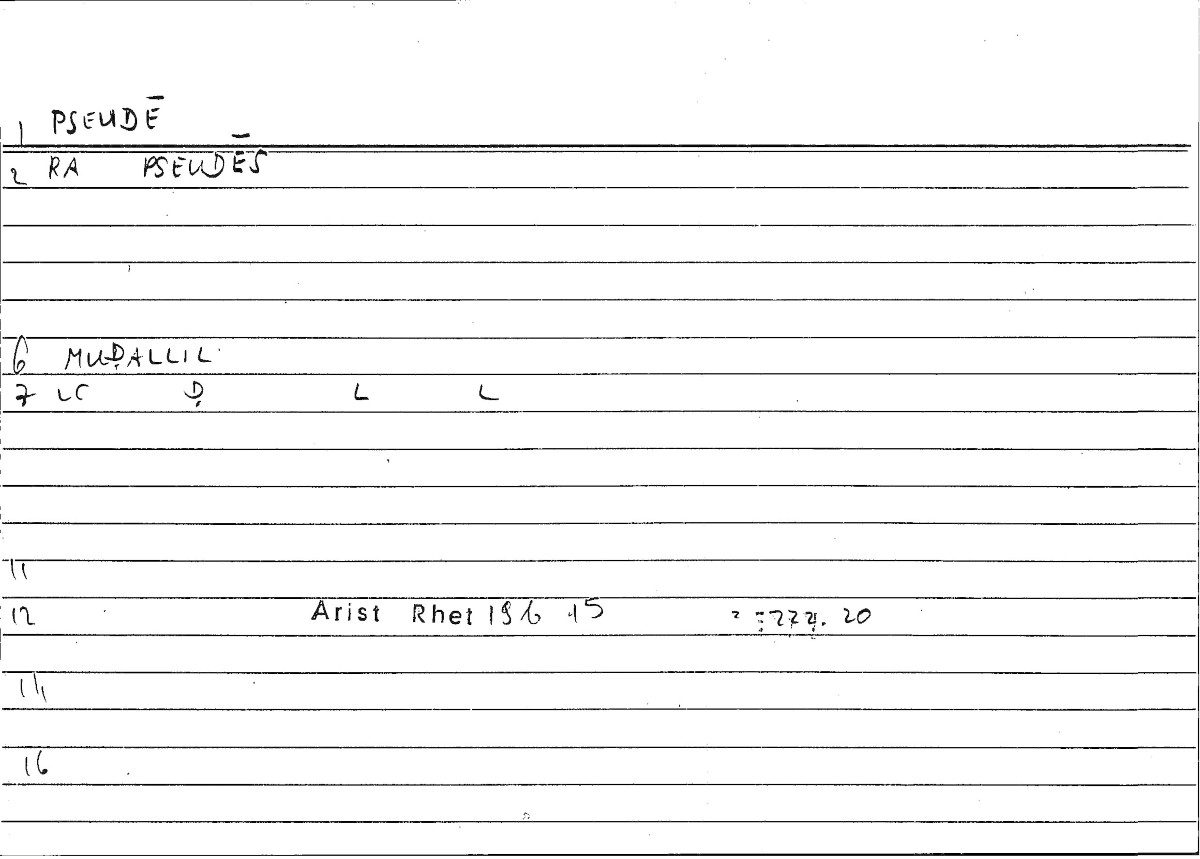 1 PSEUDĒ
2 RA PSEUDĒS
6 MUḌALLIL
7 LC Ḍ L L
11
12 Arist Rhet 196 15 20
14
16